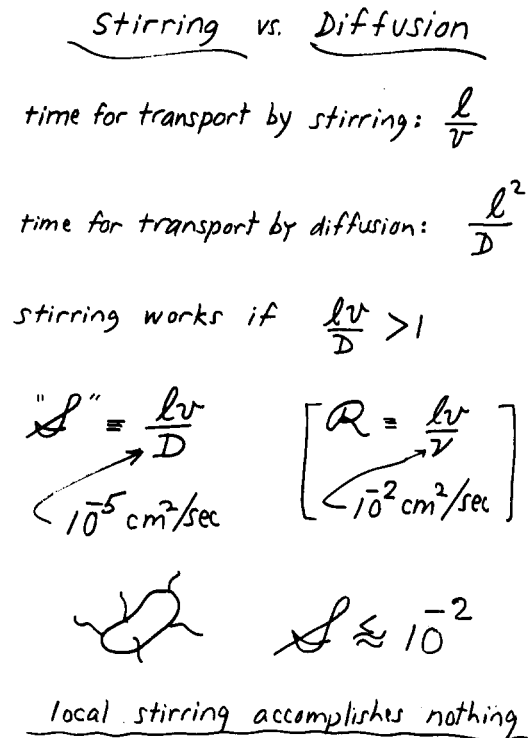 Stirring vs. Diffusion
time for transport by stirring: ℓ/v
time for transport by diffusion: ℓ²/D
stirring works if ℓv/D > 1
"𝒮" ≡ ℓv/D [ℛ = ℓv/ν]
10⁻⁵ cm²/sec 10⁻² cm²/sec
𝒮 ⪅ 10⁻²
local stirring accomplishes nothing